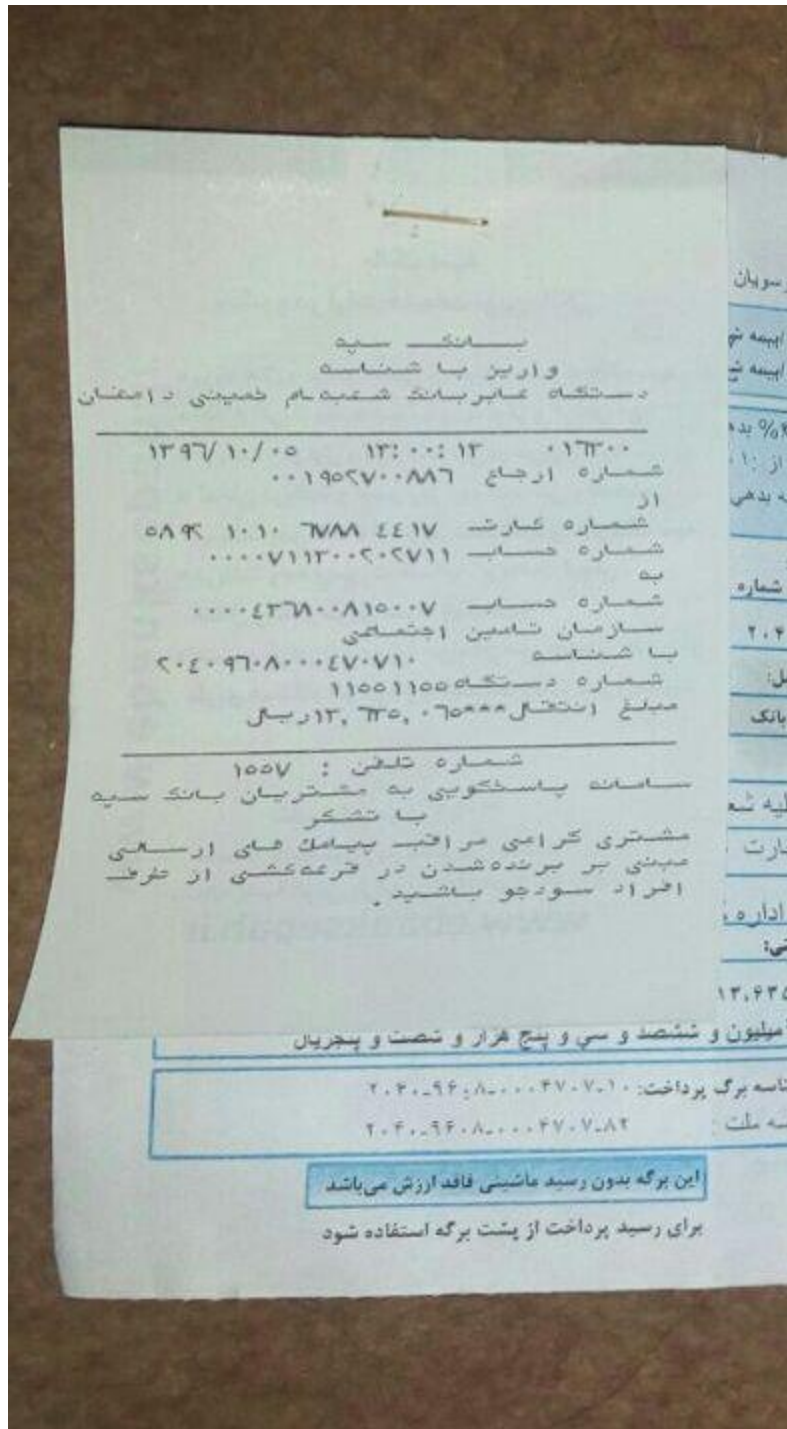 بانک سپه
واریز با شناسه
دستگاه عابربانک شعبه‌ام خمینی دامغان
۰۱۶۳۰۰ ۱۳:۰۰:۱۳ ۱۳۹۶/۱۰/۰۵
شماره ارجاع ۰۰۱۹۵۲۷۰۰۸۸۶
از
شماره کارت ۵۸۹۲ ۱۰۱۰ ۶۷۸۸ ۴۴۱۷
شماره حساب ۰۰۰۰۷۱۱۳۰۰۲۰۲۷۱۱
به
شماره حساب ۰۰۰۰۴۳۶۸۰۰۸۱۵۰۰۷
سازمان تامین اجتماعی
با شناسه ۲۰۴۰۹۶۰۸۰۰۰۴۷۰۷۱۰
شماره دستگاه ۱۱۵۵۱۱۵۵
مبلغ انتقال ***۱۳,۶۳۵,۰۶۵ ریال
شماره تلفن : ۱۵۵۷
سامانه پاسخگویی به مشتریان بانک سپه
با تشکر
مشتری گرامی مراقب پیامک های ارسالی
مبنی بر برنده‌شدن در قرعه‌کشی از طرف
افراد سودجو باشید.
رسویان
بیمه
بیمه
% بده
از :
ه بدهی
شماره
۲۰۴
بانک
ارت
اداره
۱۳,۶۳۵
میلیون و ششصد و سی و پنج هزار و شصت و پنجریال
ناسه برگ پرداخت: ۲۰۴۰-۹۶۰۸-۰۰۰۴۷۰۷-۱۰
سه ملت : ۲۰۴۰-۹۶۰۸-۰۰۰۴۷۰۷-۸۲
این برگه بدون رسید ماشینی فاقد ارزش می‌باشد
برای رسید پرداخت از پشت برگه استفاده شود